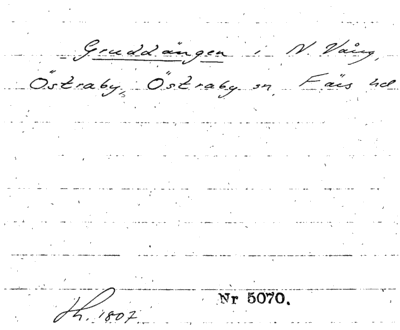 Gruddängen i N. Vång,
Östraby, Östraby sn, Färs hd
Nr 5070.
1807